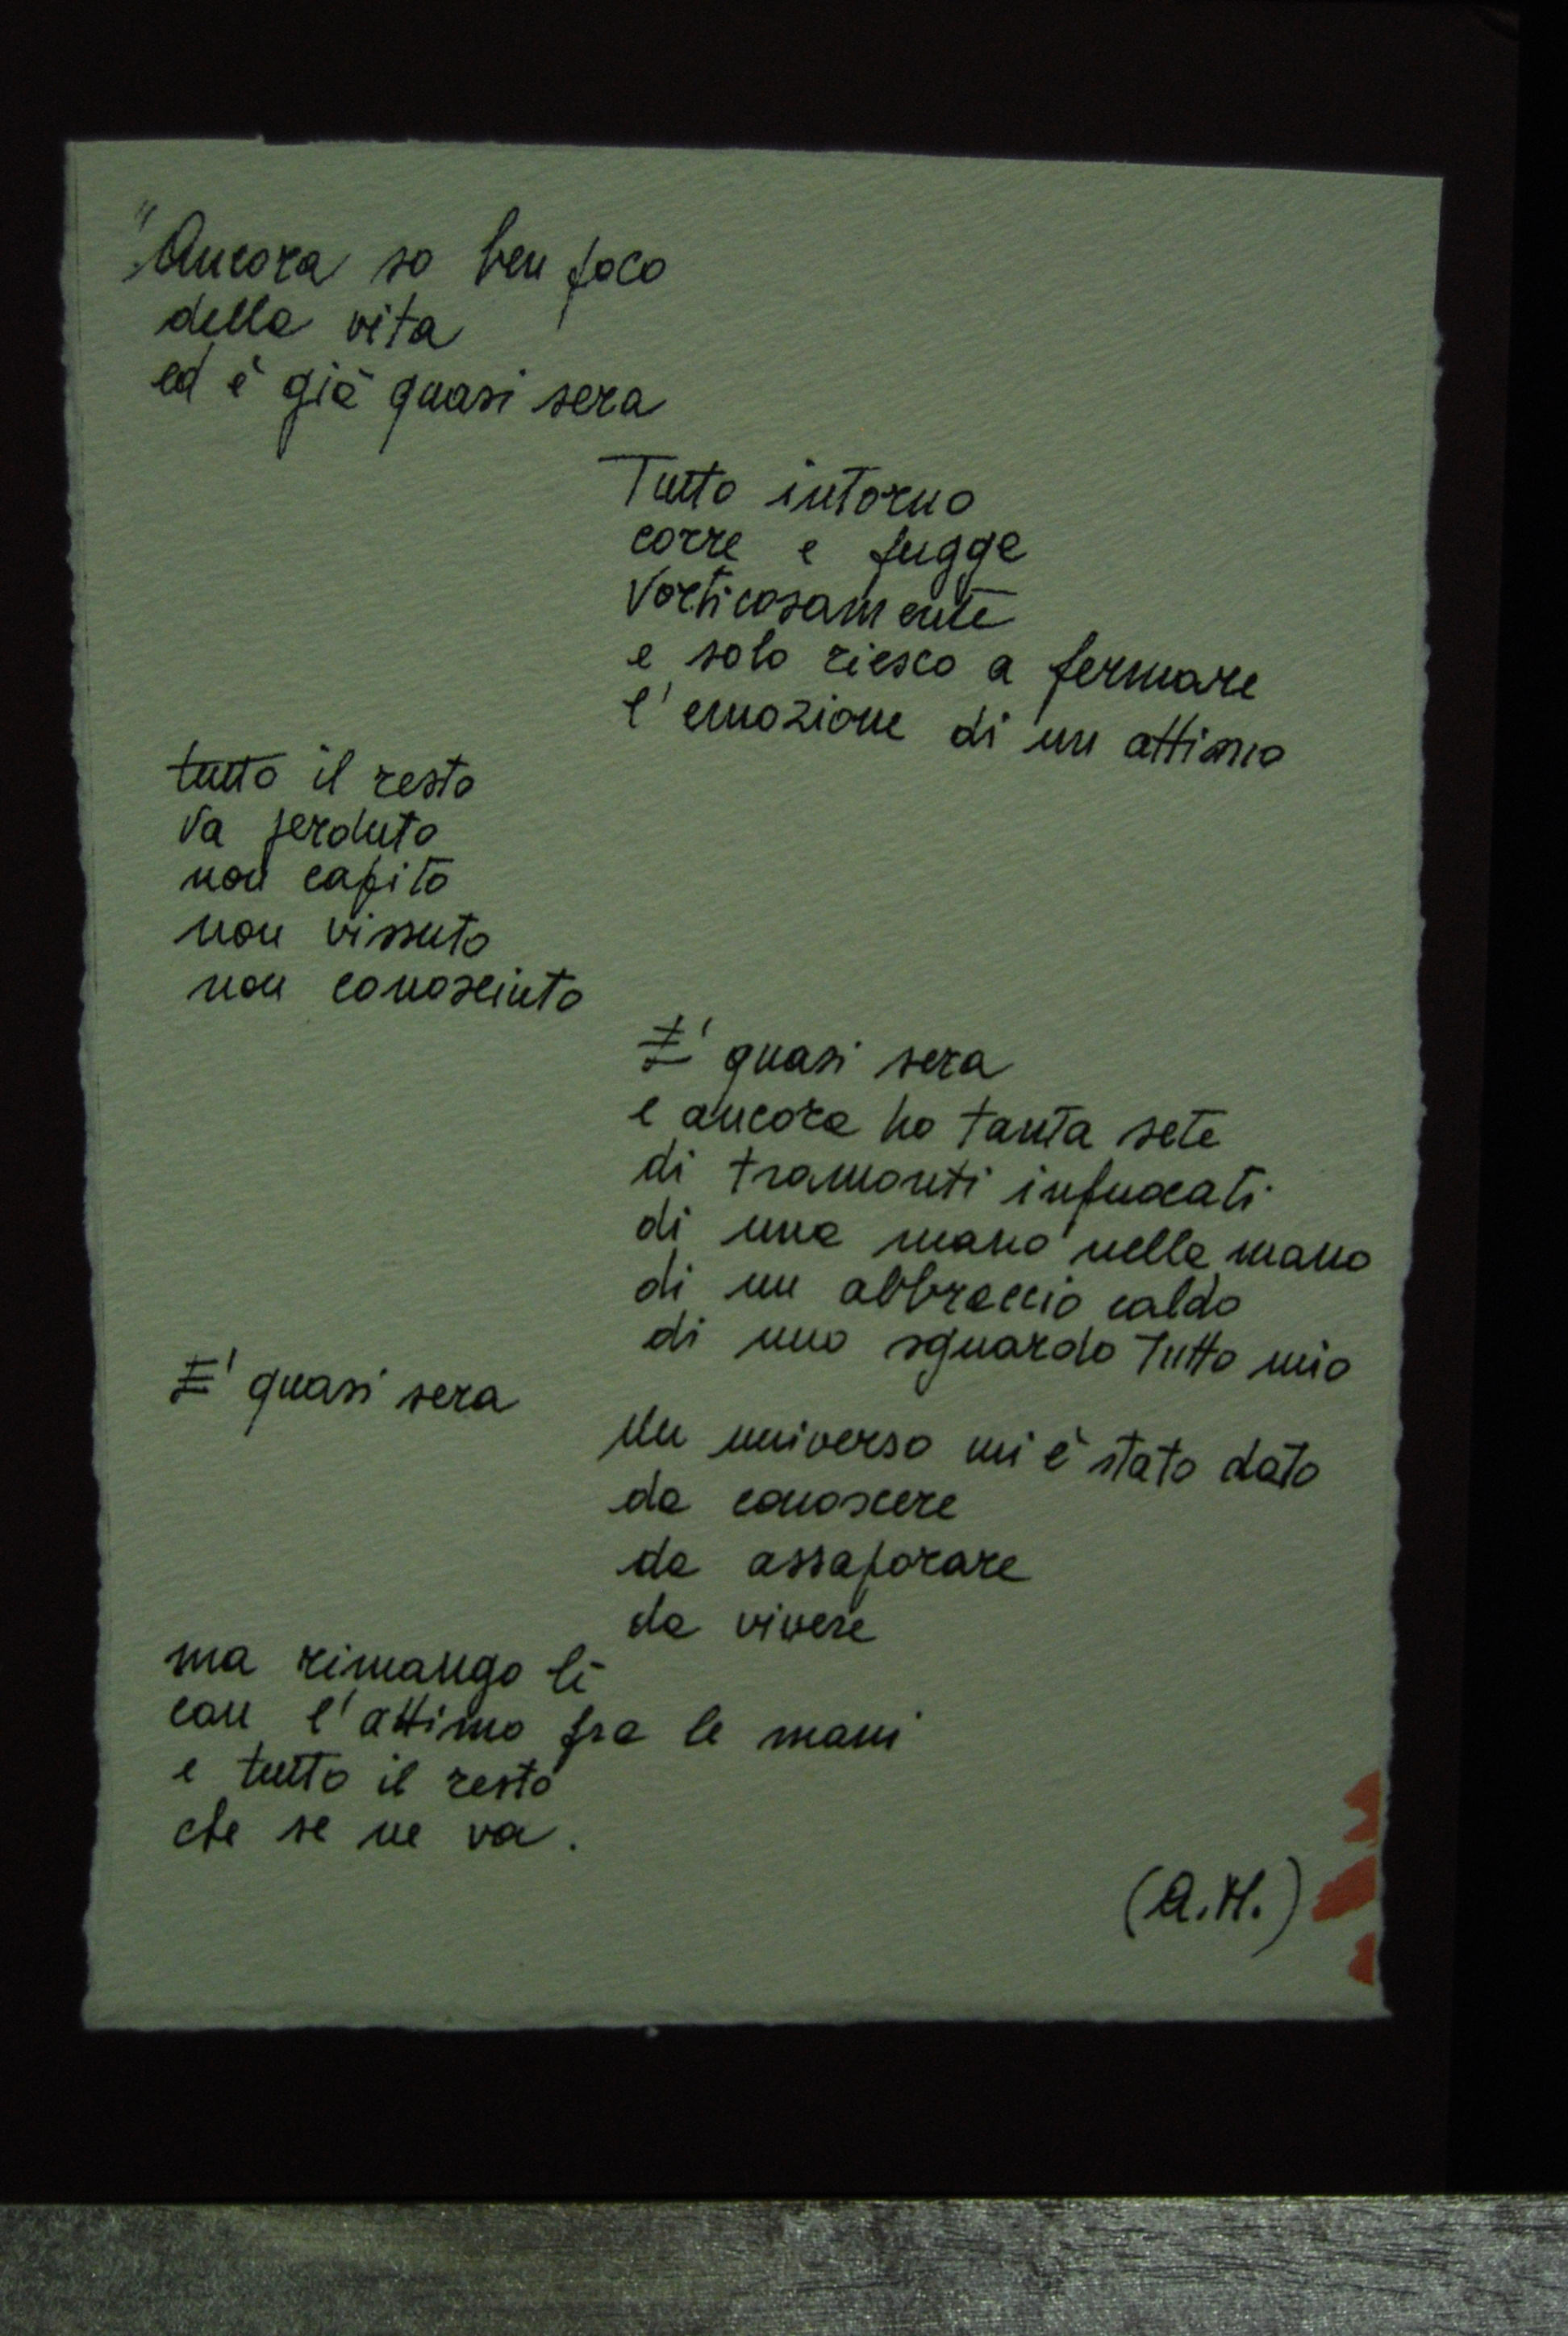 "Ancora so ben poco
della vita
ed è già quasi sera
Tutto intorno
corre e fugge
Vorticosamente
e solo riesco a fermare
l'emozione di un attimo
tutto il resto
va perduto
non capito
non vissuto
non conosciuto
E' quasi sera
e ancora ho tanta sete
di tramonti infuocati
di una mano nella mano
di un abbraccio caldo
di uno sguardo Tutto mio
E' quasi sera
Un universo mi è stato dato
da conoscere
da assaporare
da vivere
ma rimango lì
con l'attimo fra le mani
e tutto il resto
che se ne va.